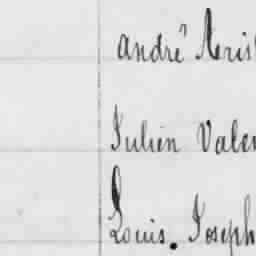 André Aris
Julien Valen
Louis. Joseph